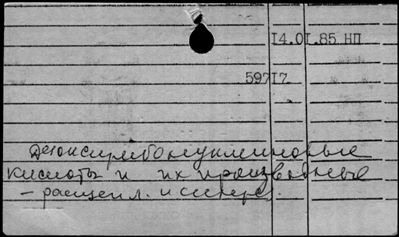 14.01.85 НП
59717
Дезоксирибонуклеиновые
кислоты и их производные
— расщепл. и синтез.